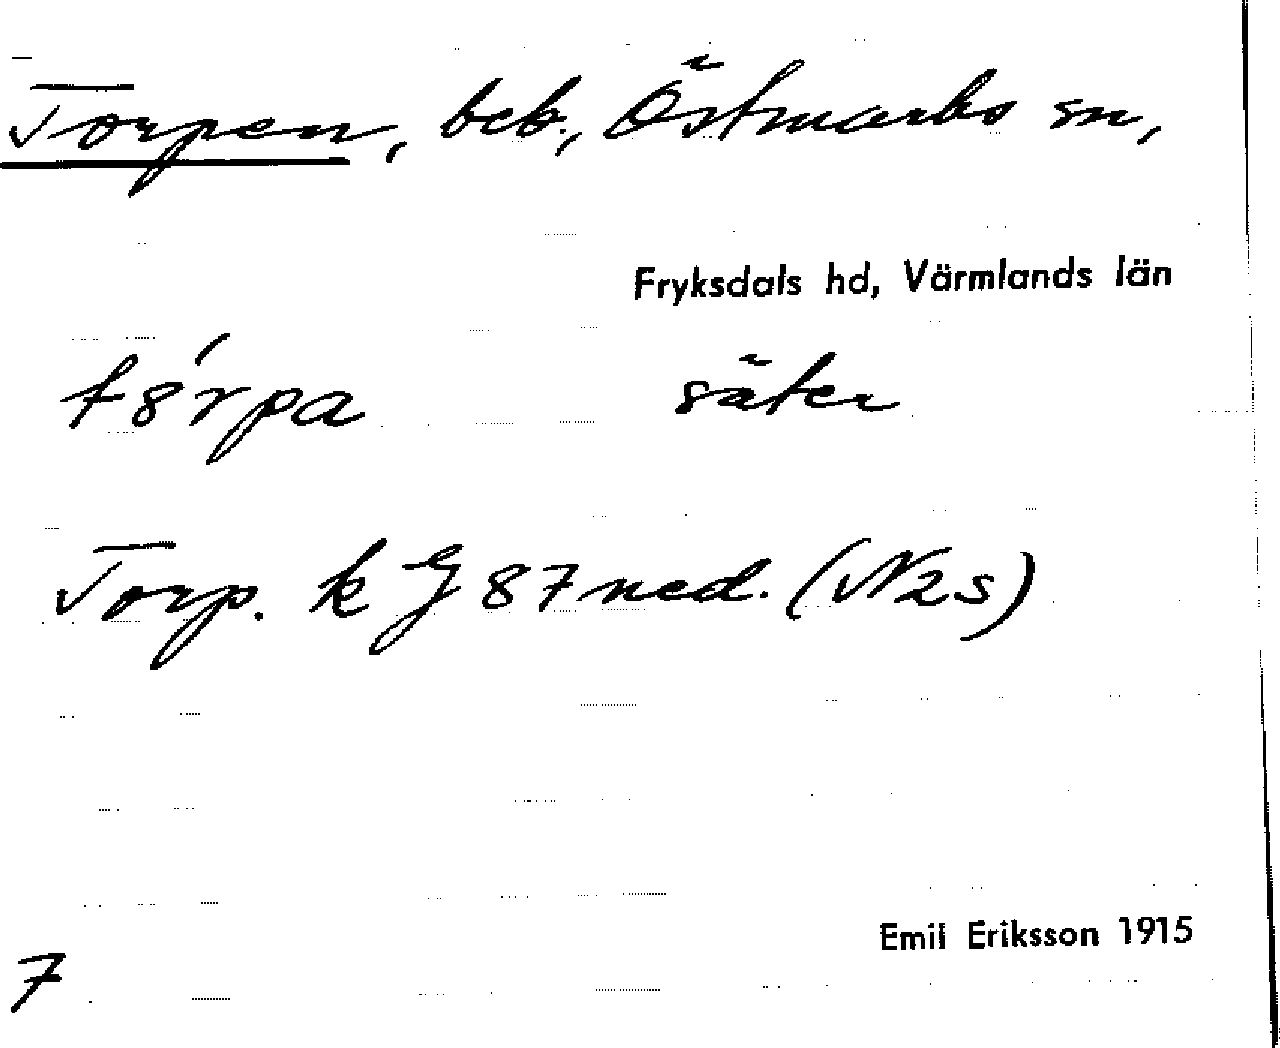 Torpen, beb., Östmarks sn,
Fryksdals hd, Värmlands län
t8́rpa säter
Torp. k G 87 ned. (N2s)
Emil Eriksson 1915
7